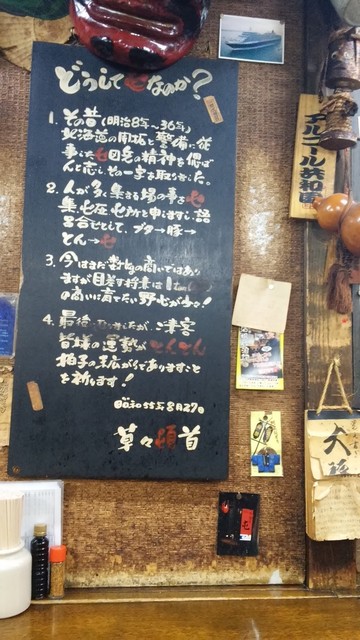 どうして屯なのか？
1. その昔(明治8年〜36年)
北海道の開拓と警備に従
事した屯田兵の精神を偲ば
んと志し、その一字お取りしました。
2. 人が多く集まる場の事を屯
集、屯在、屯所と申しますし、語
呂合せとして、ブタ→豚→
とん→屯
3. 今はまだ
ますが目差す将来は1
の商いに育てたい野心が
4. 最後になりましたが、ご来客
皆様の運勢がとんとん
拍子の末広がりでありますこと
を祈ります！
昭和55年8月27日
草々頓首
アルコール共和国
屯